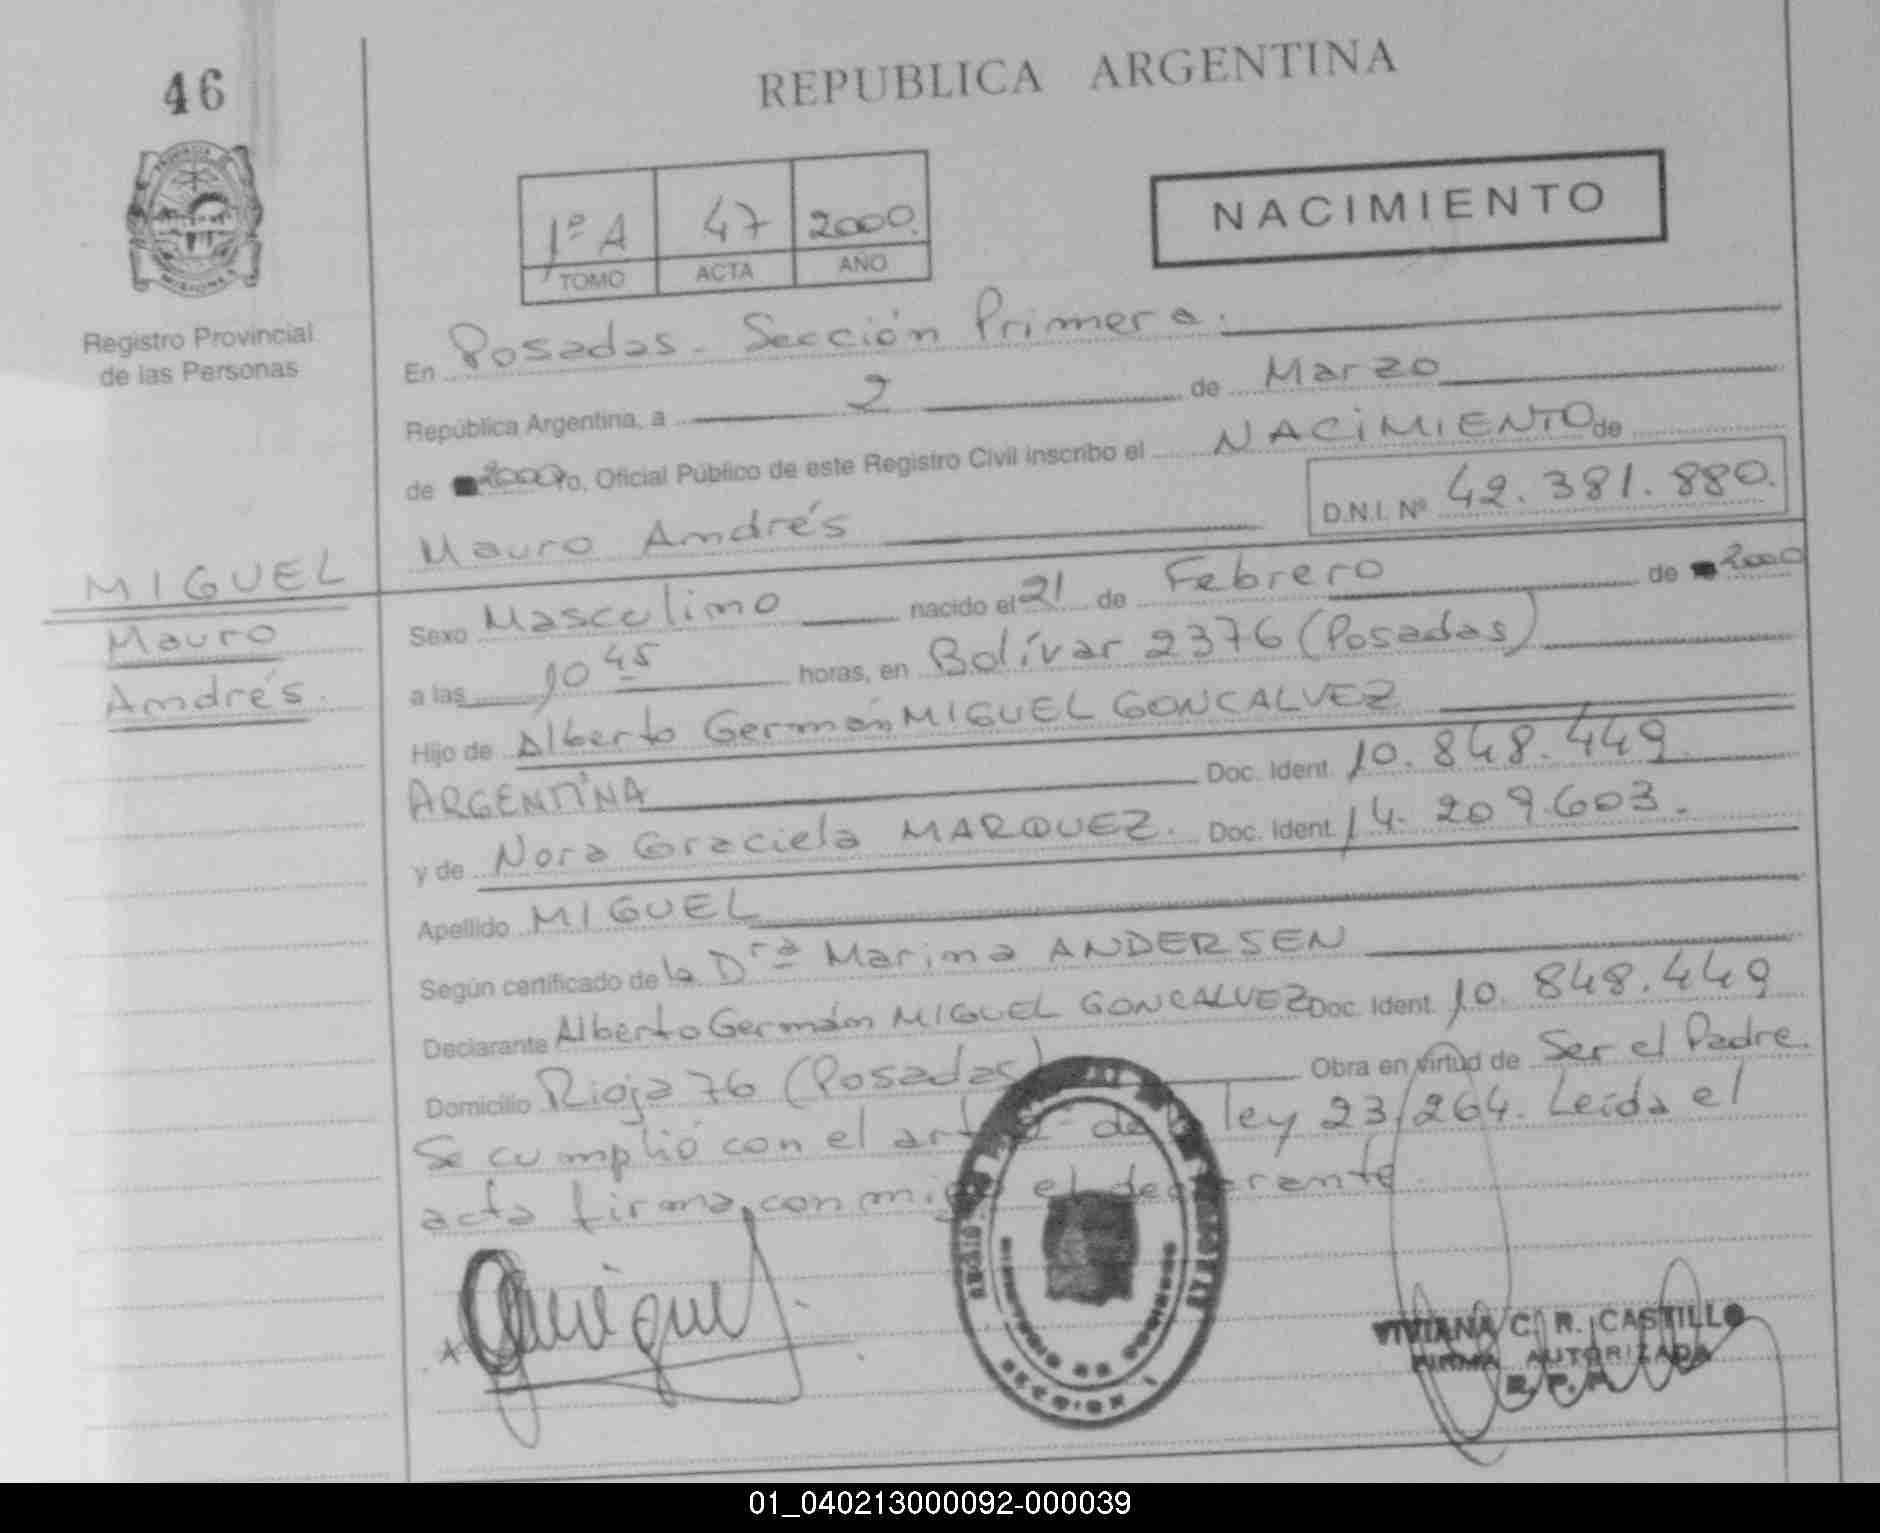 46
REPUBLICA ARGENTINA
PROVINCIA DE
MISIONES
Registro Provincial
de las Personas
1º A 47 2000.
TOMO ACTA AÑO
NACIMIENTO
En Posadas - Sección Primera.
República Argentina, a 2 de Marzo
de 2000 yo, Oficial Público de este Registro Civil inscribo el NACIMIENTO de
Mauro Andrés D.N.I. Nº 42.381.880.
MIGUEL
Mauro
Andrés.
Sexo Masculino nacido el 21 de Febrero de 2000
a las 10 45 horas, en Bolívar 2376 (Posadas)
Hijo de Alberto Germán MIGUEL GONCALVEZ
ARGENTINA Doc. Ident. 10.848.449
y de Nora Graciela MARQUEZ. Doc. Ident. 14.209.603.
Apellido MIGUEL
Según certificado de la Drª Marina ANDERSEN
Declarante Alberto Germán MIGUEL GONCALVEZ Doc. Ident. 10.848.449
Domicilio Rioja 76 (Posadas) Obra en virtud de Ser el Padre.
Se cumplió con el art. de ley 23.264. Leída el
acta firma conmigo el declarante
SECCION 1
VIVIANA C. R. CASTILLO
FIRMA AUTORIZADA
R. P. P.
01_040213000092-000039